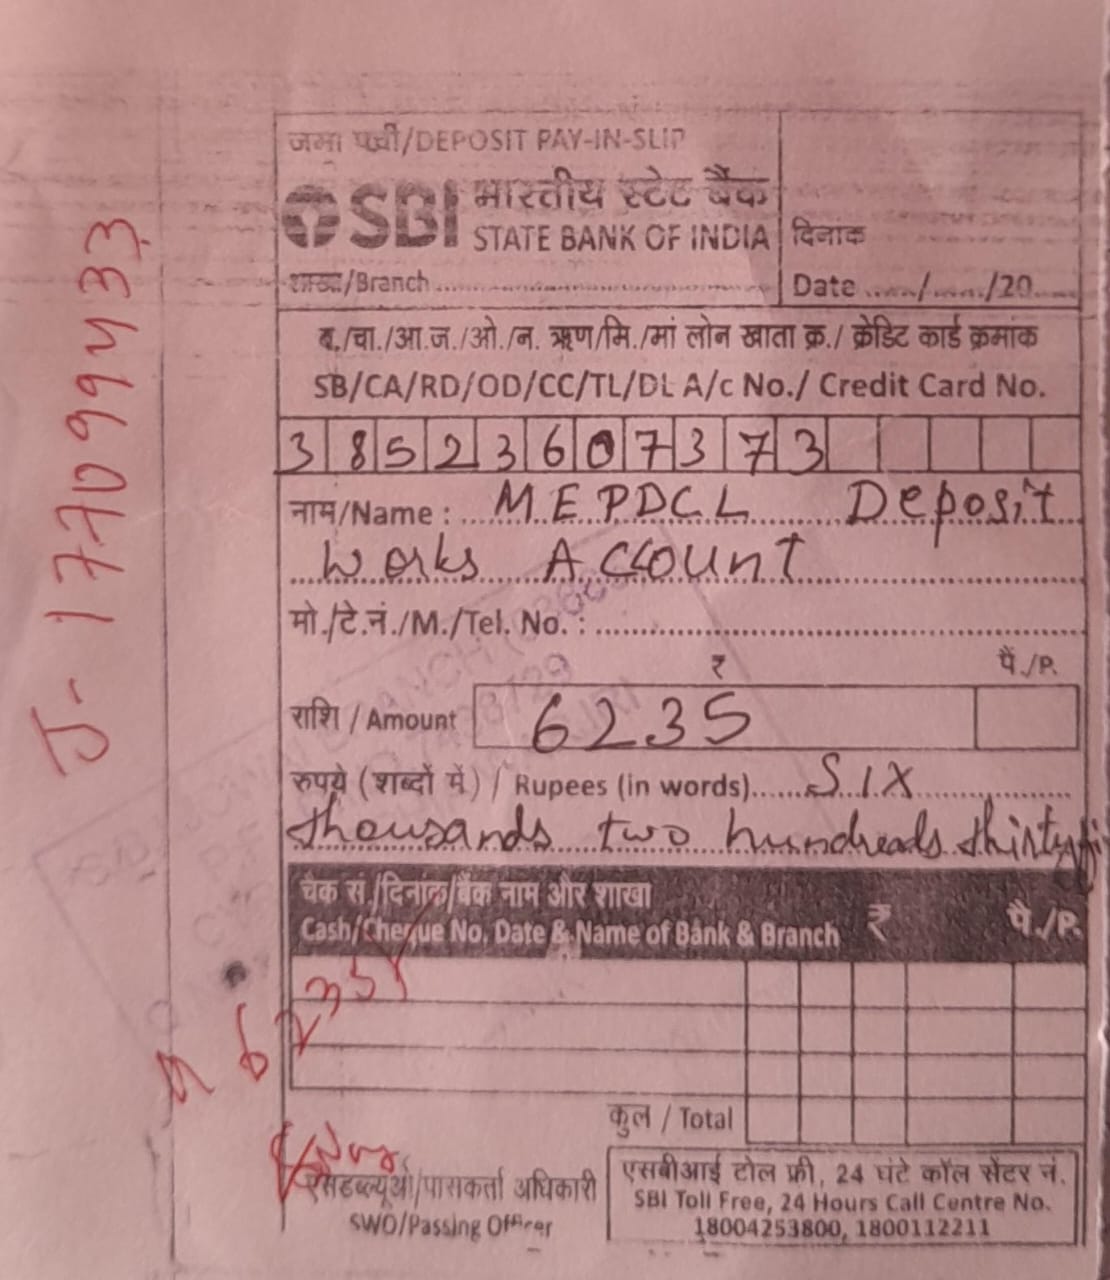 जमा पर्ची/DEPOSIT PAY-IN-SLIP
SBI भारतीय स्टेट बैंक
STATE BANK OF INDIA
दिनांक
शाखा/Branch
Date ...../...../20.....
ब./चा./आ.ज./ओ./न. ऋण/मि./मां लोन खाता क्र./ क्रेडिट कार्ड क्रमांक
SB/CA/RD/OD/CC/TL/DL A/c No./ Credit Card No.
38523607373
नाम/Name : MEPDCL Deposit
Works Account
मो./टे.नं./M./Tel. No. :
₹ पै./P.
राशि / Amount 6235
रुपये (शब्दों में) / Rupees (in words) SIX
thousands two hundreds thirty
चेक सं./दिनांक/बैंक नाम और शाखा
Cash/Cheque No. Date & Name of Bank & Branch ₹ पै./P.
6235
कुल / Total
एसडब्ल्यूओ/पासकर्ता अधिकारी
SWO/Passing Officer
एसबीआई टोल फ्री, 24 घंटे कॉल सेंटर नं.
SBI Toll Free, 24 Hours Call Centre No.
18004253800, 1800112211
J-177099433